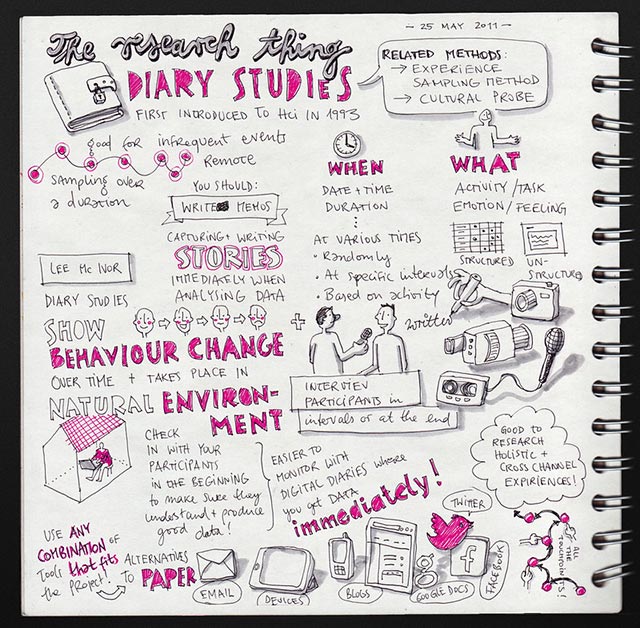 - 25 MAY 2011 -
The research thing
DIARY STUDIES
FIRST INTRODUCED TO HCI IN 1993
RELATED METHODS:
→ EXPERIENCE
SAMPLING METHOD
→ CULTURAL PROBE
good for infrequent events
REMOTE
Sampling over
a duration
YOU SHOULD:
WRITE MEMOS
CAPTURING + WRITING
STORIES
IMMEDIATELY WHEN
ANALYSING DATA
WHEN
DATE + TIME
DURATION
AT VARIOUS TIMES
• Randomly
• At specific intervals
• Based on activity
WHAT
ACTIVITY / TASK
EMOTION / FEELING
STRUCTURED
UN-
STRUCTURED
written
LEE MC IVOR
DIARY STUDIES
SHOW
BEHAVIOUR CHANGE
OVER TIME + TAKES PLACE IN
NATURAL ENVIRON-
MENT
+
INTERVIEW
PARTICIPANTS in
intervals or at the end
CHECK
IN WITH YOUR
PARTICIPANTS
IN THE BEGINNING
to make sure they
understand + produce
good data!
EASIER TO
MONITOR WITH
DIGITAL DIARIES where
you get DATA
immediately!
GOOD TO
RESEARCH
HOLISTIC +
CROSS CHANNEL
EXPERIENCES!
ALL
THE
TOUCHPOINTS!
USE ANY
COMBINATION OF
Tools that fits
the Project!
ALTERNATIVES
TO PAPER
EMAIL
DEVICES
BLOGS
GOOGLE DOCS
TWITTER
FACEBOOK